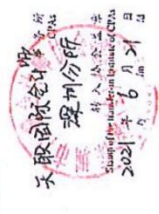 天职国际会计师事务所
深圳分所
转入协会盖章
Stamp of the Transfer-in Institute of CPAs
2021年6月21日